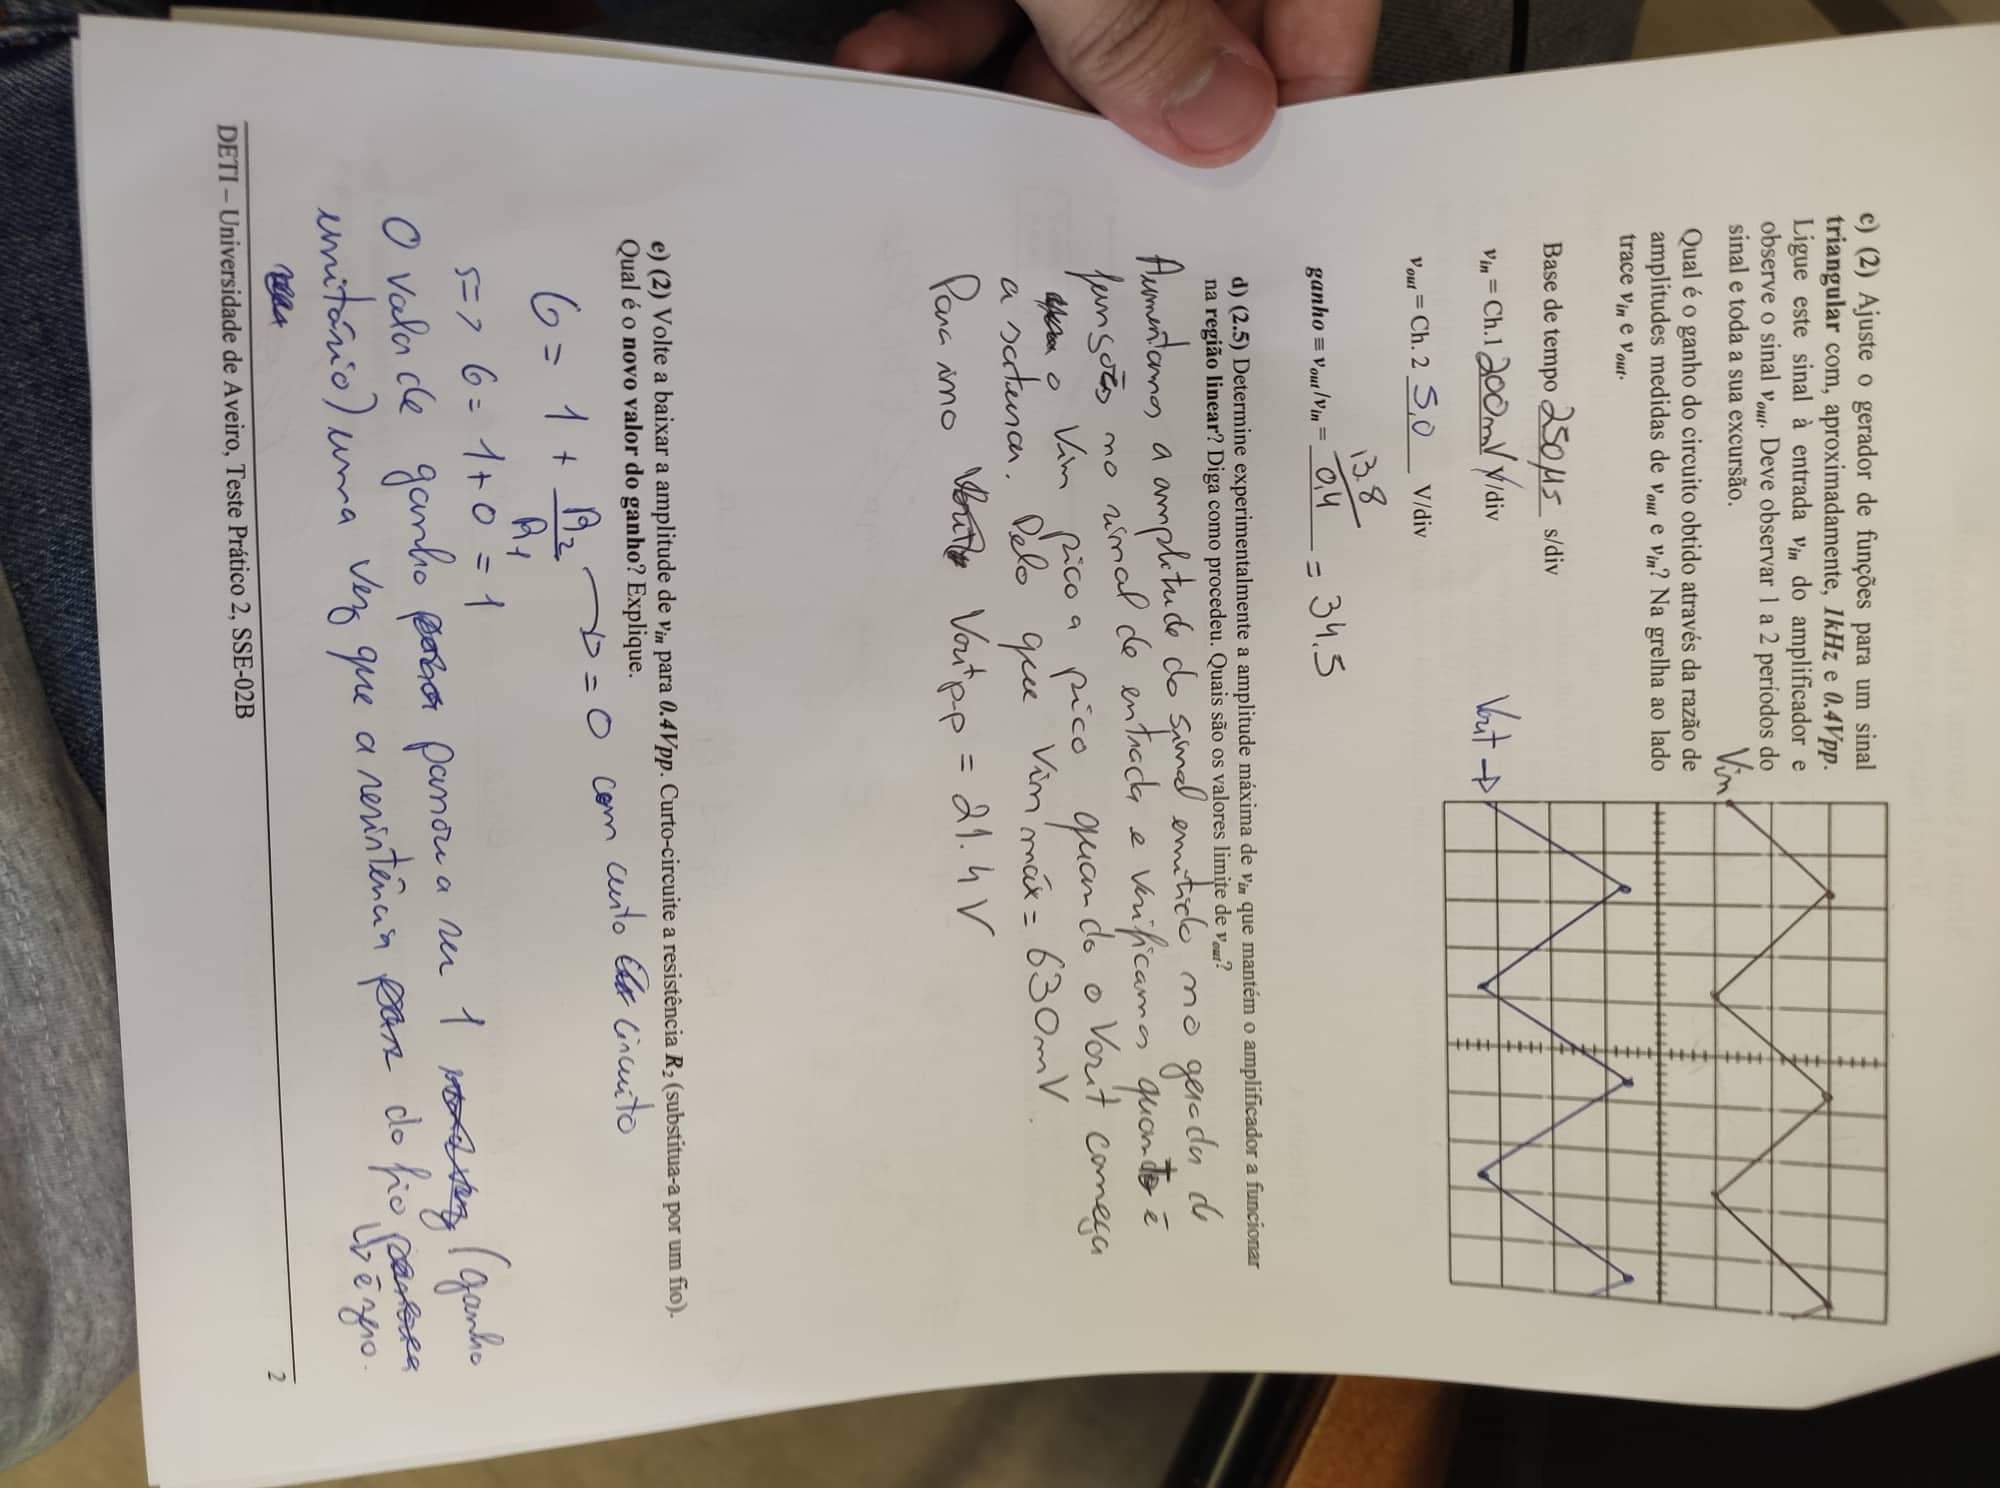 c) (2) Ajuste o gerador de funções para um sinal
triangular com, aproximadamente, 1kHz e 0.4Vpp.
Ligue este sinal à entrada vin do amplificador e
observe o sinal vout. Deve observar 1 a 2 períodos do
sinal e toda a sua excursão.
Vin
Qual é o ganho do circuito obtido através da razão de
amplitudes medidas de vout e vin? Na grelha ao lado
trace vin e vout.
Base de tempo 250μs s/div
vin = Ch.1 200mV V/div
Vout →
vout = Ch. 2 5,0 V/div
ganho ≡ vout/vin = 13.8/0,4 = 34.5
d) (2.5) Determine experimentalmente a amplitude máxima de vin que mantém o amplificador a funcionar
na região linear? Diga como procedeu. Quais são os valores limite de vout?
Aumentamos a amplitude do sinal emitido no gerador de
funções no sinal de entrada e verificamos quanto é
o Vin pico a pico quando o Vout começa
a saturar. Pelo que Vin máx = 630mV.
Para isso Vout p-p = 21.4 V
e) (2) Volte a baixar a amplitude de vin para 0.4Vpp. Curto-circuite a resistência R2 (substitua-a por um fio).
Qual é o novo valor do ganho? Explique.
G = 1 + R2/R1 → = 0 com curto circuito
=> G = 1+0 = 1
O valor de ganho passou a ser 1 (ganho
unitário) uma vez que a resistência do fio
↳ é zero.
2
DETI – Universidade de Aveiro, Teste Prático 2, SSE-02B